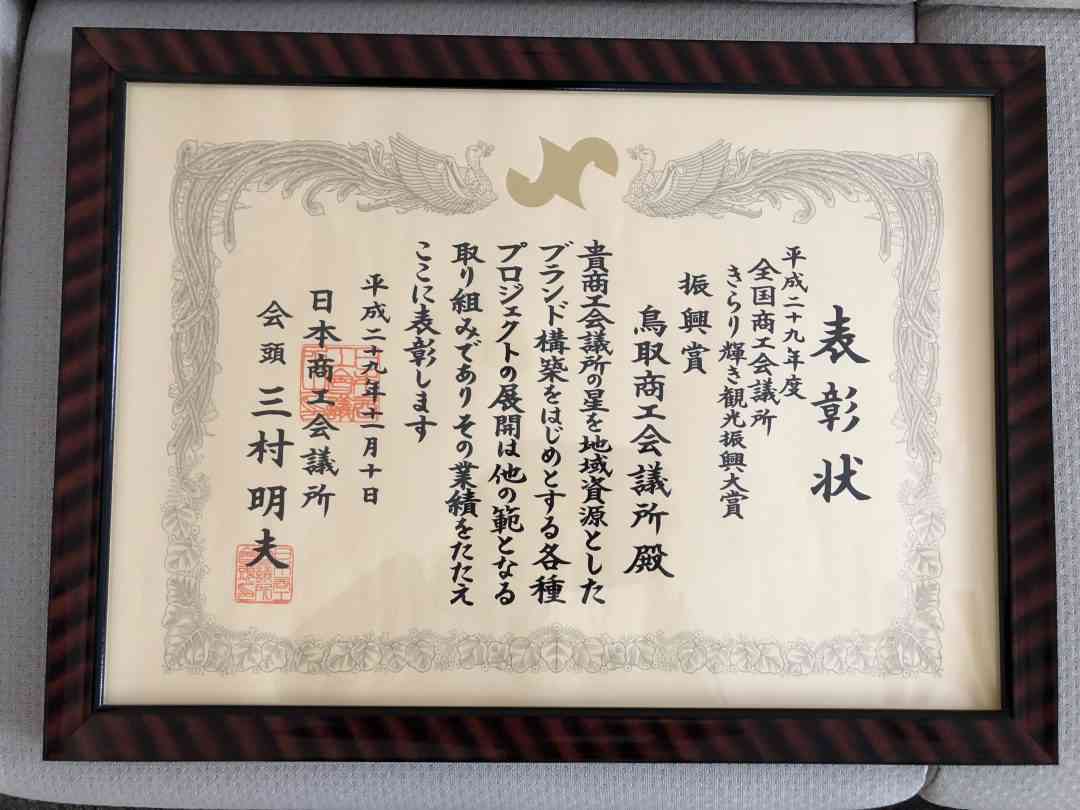 表彰状
平成二十九年度
全国商工会議所
きらり輝き観光振興大賞
振興賞
鳥取商工会議所殿
貴商工会議所の星を地域資源とした
ブランド構築をはじめとする各種
プロジェクトの展開は他の範となる
取り組みでありその業績をたたえ
ここに表彰します
平成二十九年十一月十日
日本商工会議所
会頭 三村明夫